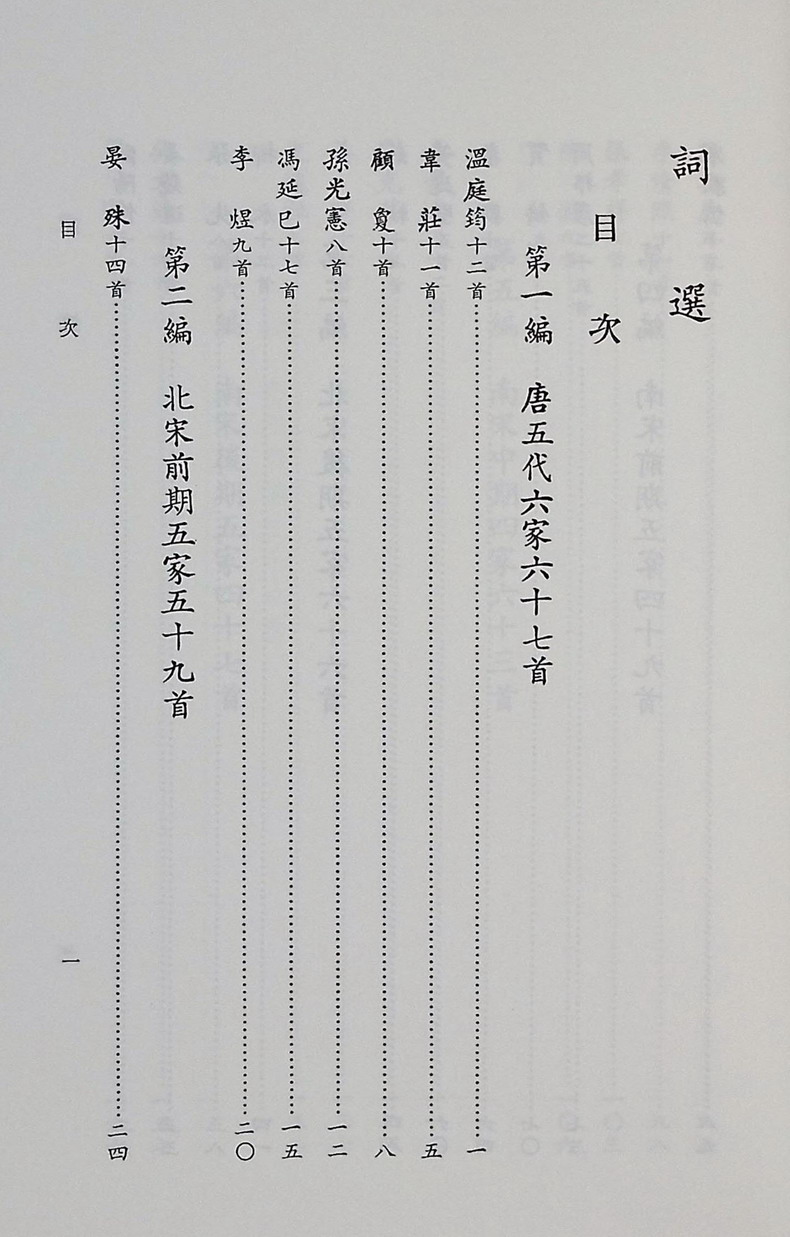 詞選
目次
第一編 唐五代六家六十七首
溫庭筠十二首……一
韋莊十一首……五
顧敻十首……八
孫光憲八首……一二
馮延巳十七首……一五
李煜九首……二〇
第二編 北宋前期五家五十九首
晏殊十四首……二四
目次 一